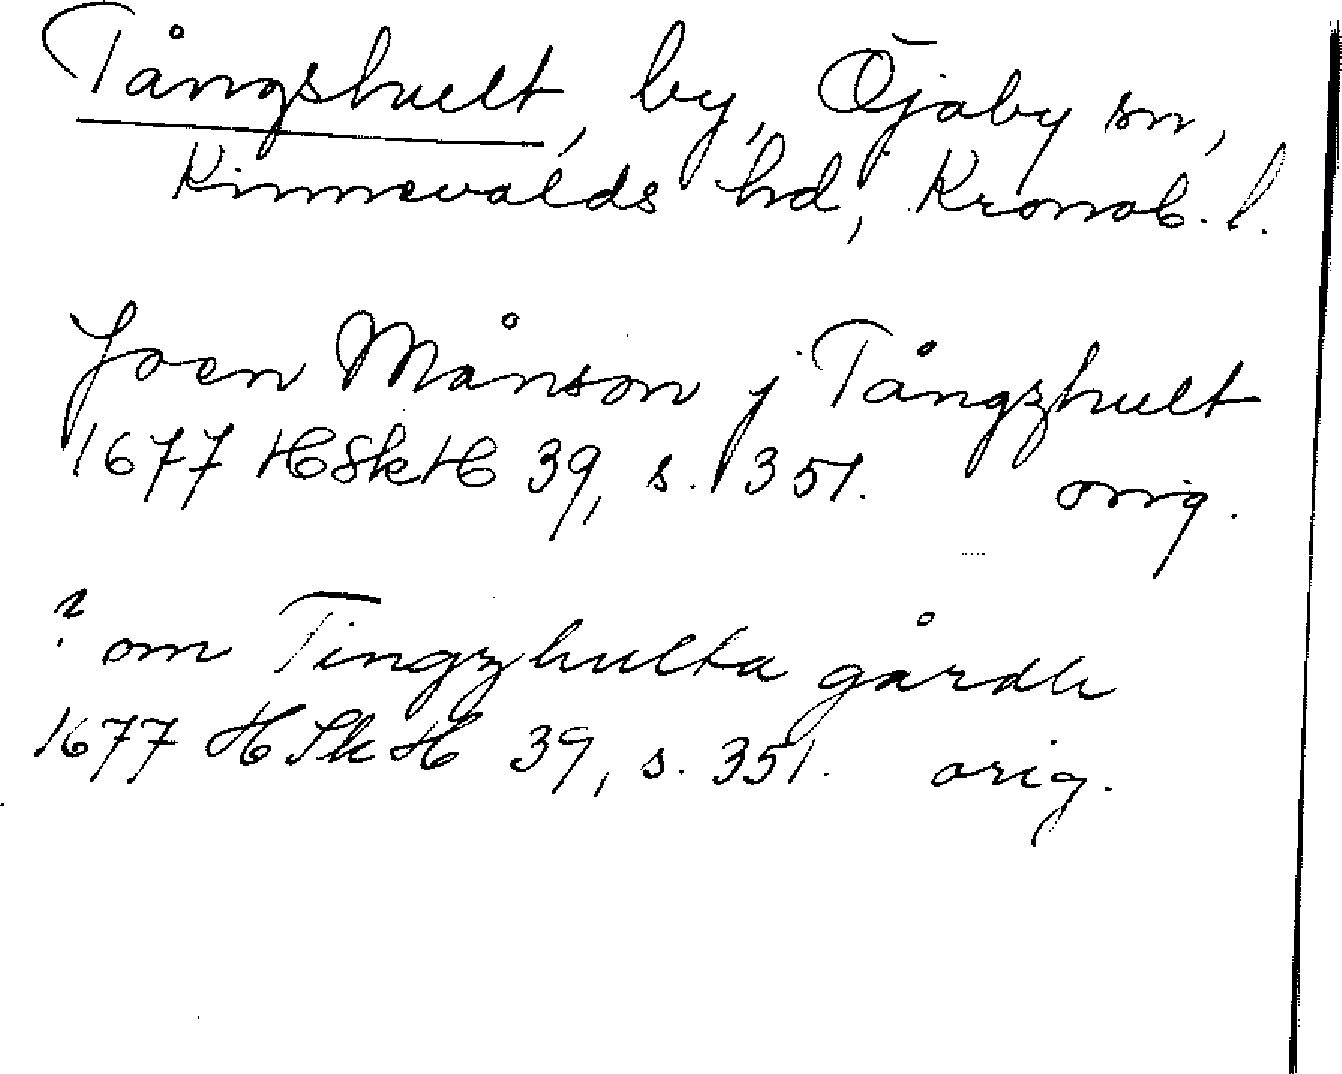 Tångshult, by, Öjaby sn,
Kinnevalds hd, Kronob. l.
Joen Månson j Tångzhult
1677 HSkH 39, s. 351. orig.
? om Tingzhulta gårdh
1677 HSkH 39, s. 351. orig.